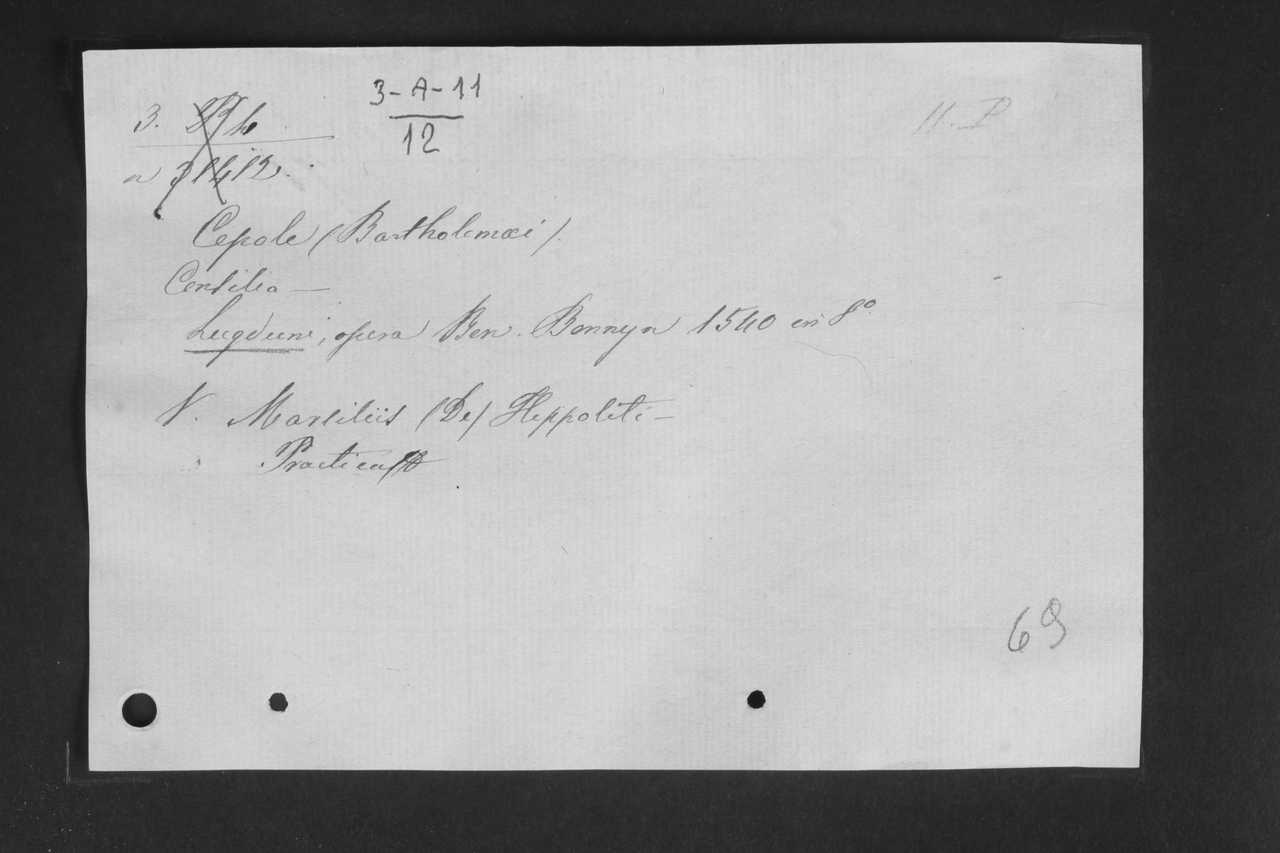 3-A-11
12
3.
H. P
Cepole (Bartholomæi).
Consilia —
Lugduni, opera Ben. Bonnyn 1540 en 8º
V. Marsiliis (De) Hippoliti —
Practica
69